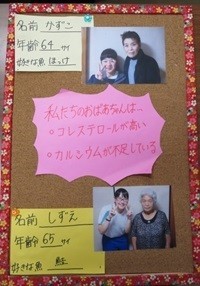 名前 かずこ
年齢 64 才
好きな魚 ほっけ
私たちのおばあちゃんは…
○コレステロールが高い
○カルシウムが不足している
名前 しずえ
年齢 65 才
好きな魚 鮭